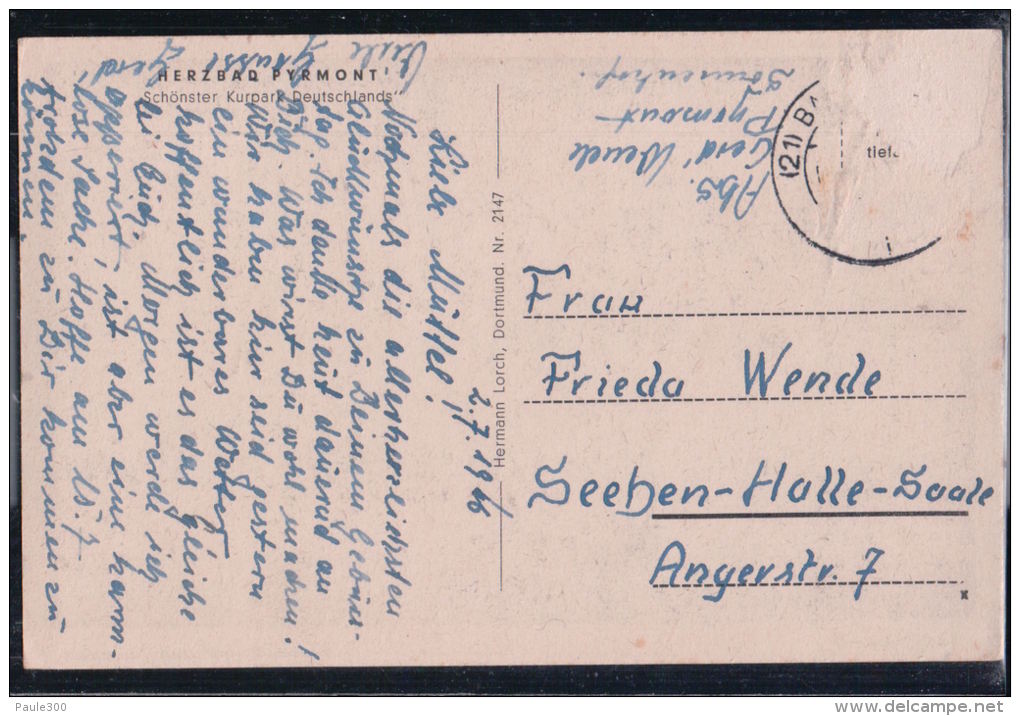 HERZBAD PYRMONT
"Schönster Kurpark Deutschlands"
2.7.1946
Liebe Muttel!
Nochmals die allerherzlichsten
Glückwünsche zu Deinem Geburts-
tag. Ich denke heut dauernd an
Dich. Was wirst Du wohl machen!
Wir haben hier seid gestern
ein wunderbares Wetter,
hoffentlich ist es das gleiche
bei Euch. Morgen werde ich
operiert, ist aber eine harm-
lose Sache. Hoffe am 15.7.
trotzdem zu Dir kommen zu
können.
Viele Grüsse
Gerd
Hermann Lorch, Dortmund. Nr. 2147
Abs.
Gerd Wende
Pyrmont
(21) B
tief
Frau
Frieda Wende
Seeben-Halle-Saale
Angerstr. 7
x
Paule300